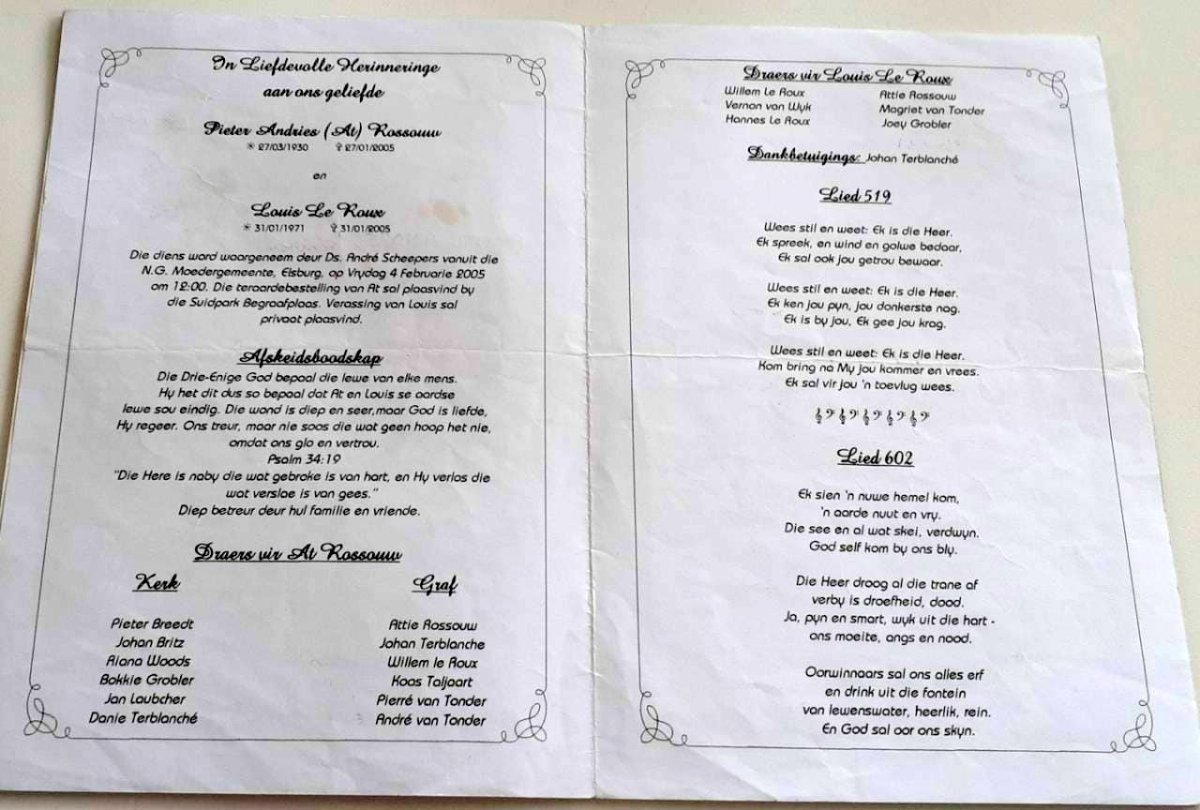 In Liefdevolle Herinneringe
aan ons geliefde
Pieter Andries (At) Rossouw
* 27/03/1930 ✝ 27/01/2005
en
Louis Le Roux
* 31/01/1971 ✝ 31/01/2005
Die diens word waargeneem deur Ds. André Scheepers vanuit die
N.G. Moedergemeente, Elsburg, op Vrydag 4 Februarie 2005
om 12:00. Die teraardebestelling van At sal plaasvind by
die Suidpark Begraafplaas. Verassing van Louis sal
privaat plaasvind.
Afskeidsboodskap
Die Drie-Enige God bepaal die lewe van elke mens.
Hy het dit dus so bepaal dat At en Louis se aardse
lewe sou eindig. Die wond is diep en seer,maar God is liefde,
Hy regeer. Ons treur, maar nie soos die wat geen hoop het nie,
omdat ons glo en vertrou.
Psalm 34:19
"Die Here is naby die wat gebroke is van hart, en Hy verlos die
wat verslae is van gees."
Diep betreur deur hul familie en vriende.
Draers vir At Rossouw
Kerk Graf
Pieter Breedt Attie Rossouw
Johan Britz Johan Terblanche
Riana Woods Willem le Roux
Bokkie Grobler Koos Taljaart
Jan Laubcher Pierré van Tonder
Danie Terblanché André van Tonder
Draers vir Louis Le Roux
Willem Le Roux Attie Rossouw
Vernon van Wyk Magriet van Tonder
Hannes Le Roux Joey Grobler
Dankbetuigings: Johan Terblanché
Lied 519
Wees stil en weet: Ek is die Heer.
Ek spreek, en wind en golwe bedaar,
Ek sal ook jou getrou bewaar.
Wees stil en weet: Ek is die Heer.
Ek ken jou pyn, jou donkerste nag.
Ek is by jou, Ek gee jou krag.
Wees stil en weet: Ek is die Heer.
Kom bring na My jou kommer en vrees.
Ek sal vir jou 'n toevlug wees.
Lied 602
Ek sien 'n nuwe hemel kom,
'n aarde nuut en vry.
Die see en al wat skei, verdwyn.
God self kom by ons bly.
Die Heer droog al die trane af
verby is droefheid, dood.
Ja, pyn en smart, wyk uit die hart -
ons moeite, angs en nood.
Oorwinnaars sal ons alles erf
en drink uit die fontein
van lewenswater, heerlik, rein.
En God sal oor ons skyn.